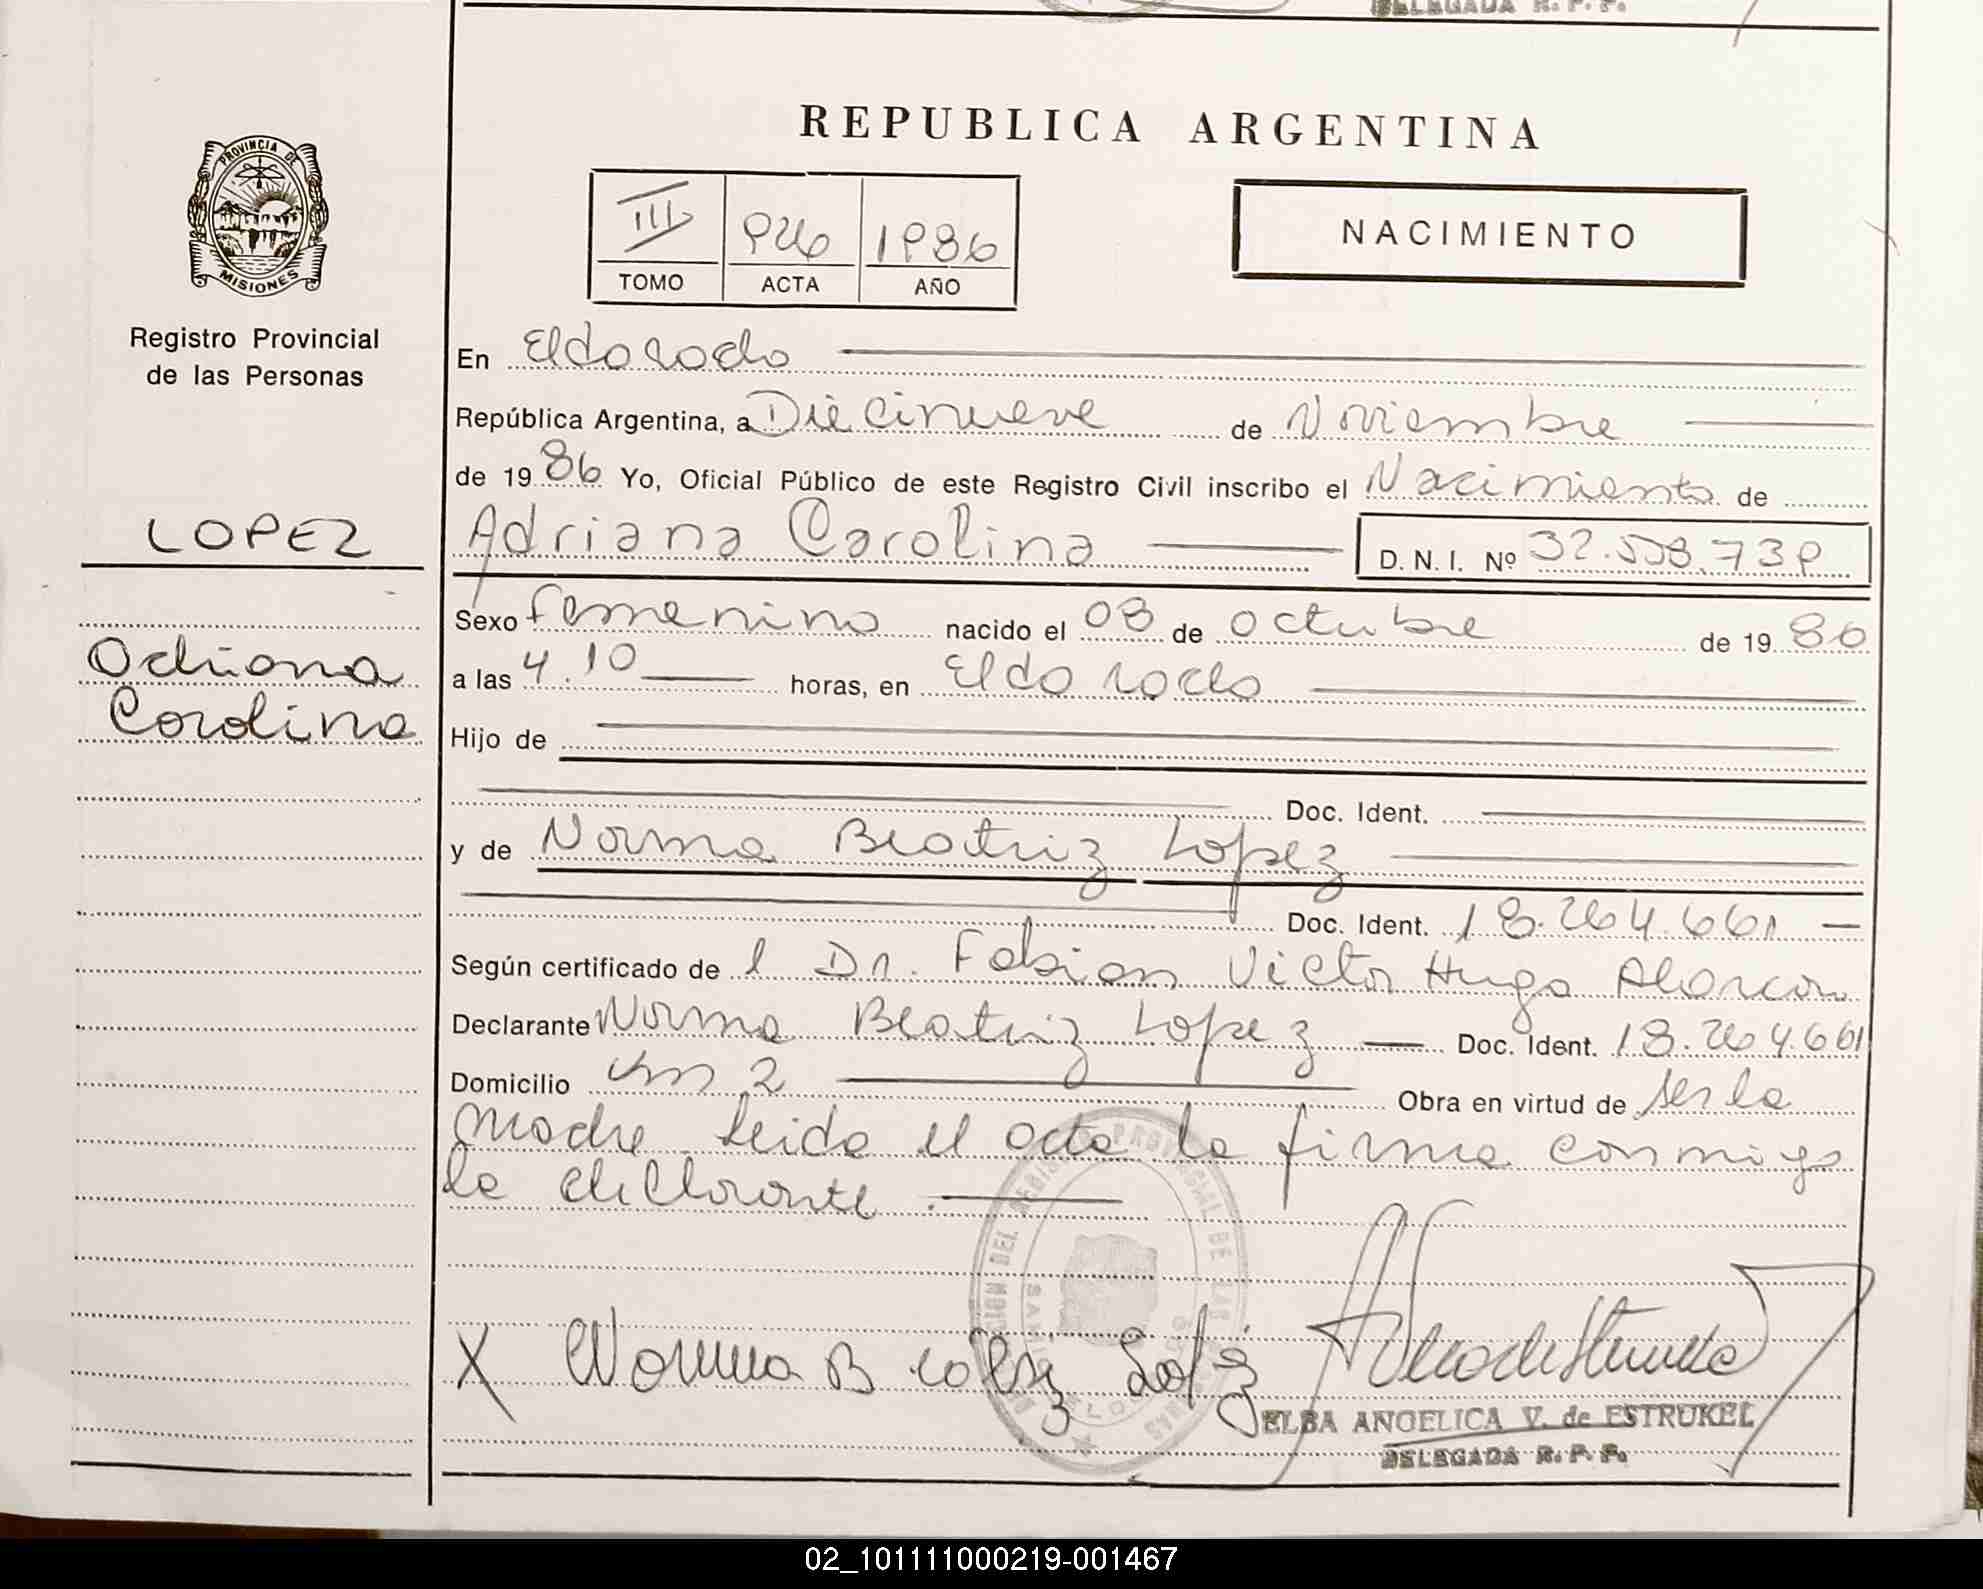 DELEGADA R. P. P.
REPUBLICA ARGENTINA
PROVINCIA DE
MISIONES
Registro Provincial
de las Personas
III 926 1986
TOMO ACTA AÑO
NACIMIENTO
En Eldorado
República Argentina, a Diecinueve de Noviembre
de 19 86 Yo, Oficial Público de este Registro Civil inscribo el Nacimiento de
LOPEZ
Adriana Carolina D. N. I. Nº 32.558.739
Sexo femenino nacido el 08 de octubre de 19 86
Adriana
Carolina
a las 4.10 horas, en Eldorado
Hijo de
Doc. Ident.
y de Norma Beatriz Lopez
Doc. Ident. 18.264.661
Según certificado de l Dr. Fabian Victor Hugo Alarcon
Declarante Norma Beatriz Lopez Doc. Ident. 18.264.661
Domicilio Km 2 Obra en virtud de ser la
madre leida el acta la firma conmigo
la declarante.
X Norma B Lopez
ELBA ANGELICA V. de ESTRUKEL
DELEGADA R. P. P.
02_101111000219-001467